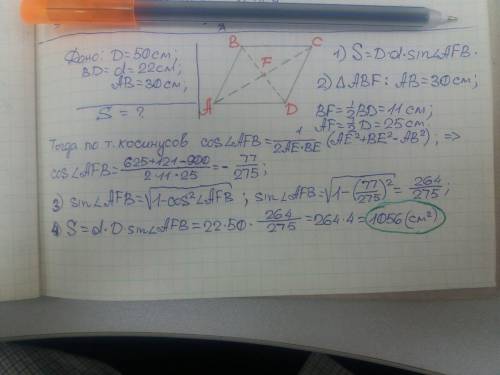 Дано: D = 50 см;
BD = d = 22 см;
AB = 30 см;
S = ?
A
B C
F
A D
1) S = D·d·sin∠AFB.
2) △ABF: AB = 30 см;
BF = 1/2 BD = 11 см;
AF = 1/2 D = 25 см;
Тогда по т. косинусов cos∠AFB = 1/(2AE·BE) (AE² + BE² - AB²); =>
cos∠AFB = (625+121-900)/(2·11·25) = - 77/275;
3) sin∠AFB = √(1-cos²∠AFB); sin∠AFB = √(1-(77/275)²) = 264/275;
4) S = d·D·sin∠AFB = 22·50· 264/275 = 264·4 = 1056 (см²)